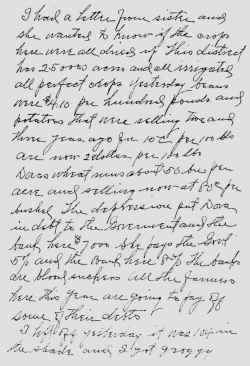 I had a letter from sister and
she wanted to know if the crops
here were all dried up This district
has 25000 acres and all irrigated
all perfect crops yesterday beans
were $4.10 per hundred pounds and
potatoes that were selling two and
three years ago for 10¢ per 100 lbs
are now 2 dollars per 100 lbs
Daws wheat runs about 50 bu per
acre and selling now at 80¢ per
bushel The depression put Daws
in debt to the Government and the
bank here $7000 he pays the Govt
5% and the Bank here 8% The banks
are blood suckers all the farmers
here this year are going to pay off
some of their debts
I left off yesterday it was 104 in
the shade and I got groggy